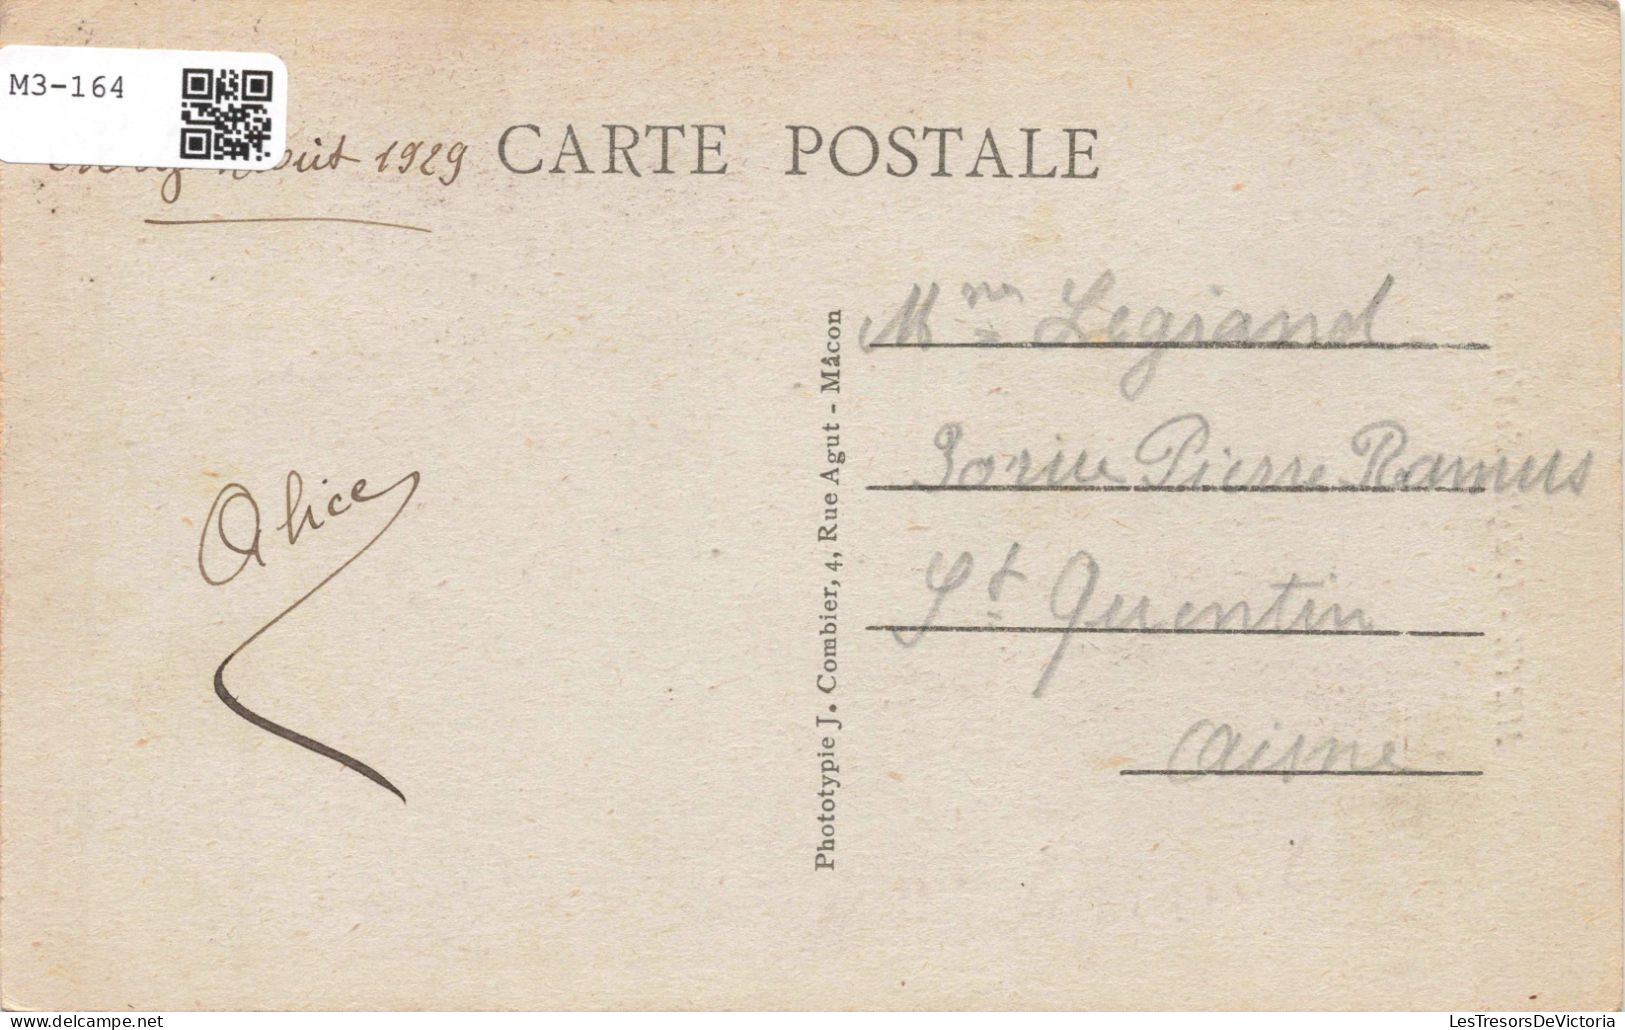 M3-164
Août 1929
CARTE POSTALE
Mme Legrand
30 rue Pierre Ramus
St Quentin
Aisne
Alice
Phototypie J. Combier, 4, Rue Agut - Mâcon
LesTresorsDeVictoria
www.delcampe.net